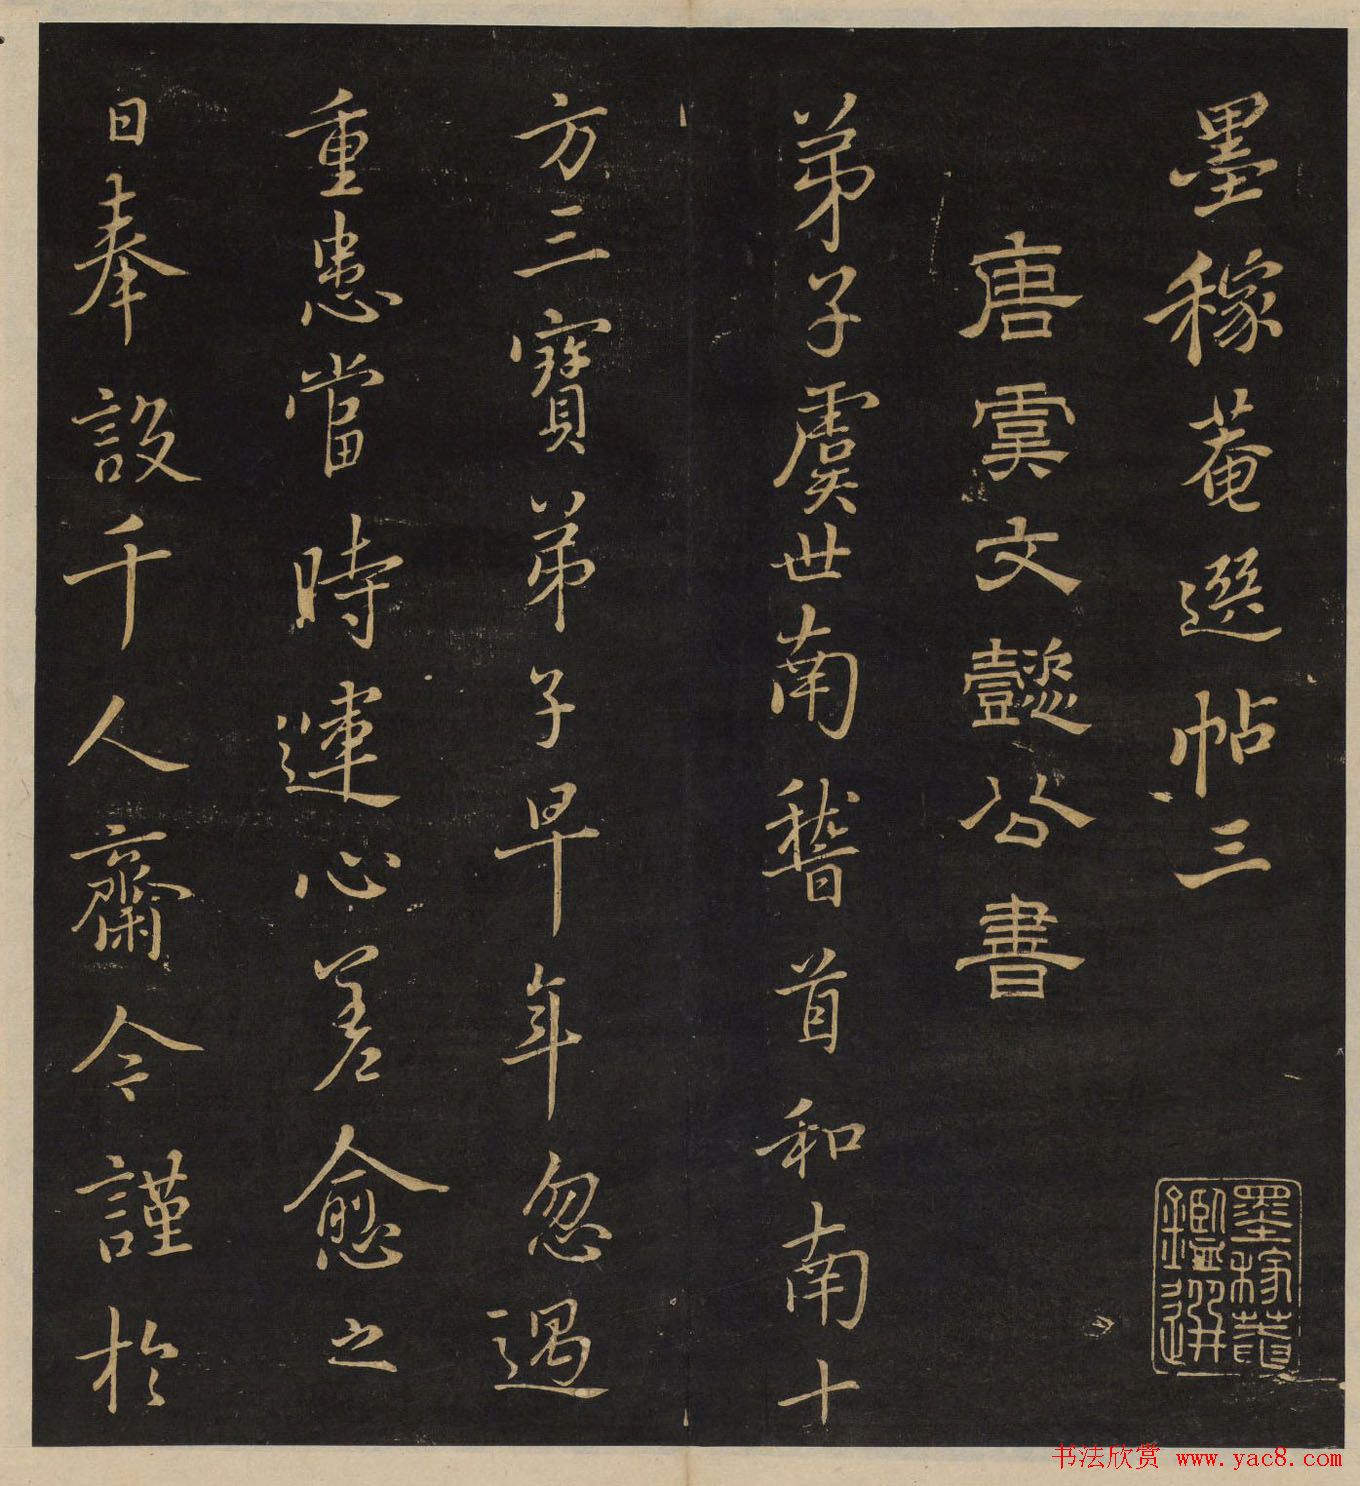 墨稼菴選帖三
唐虞文懿公書
弟子虞世南稽首和南十
方三寶弟子早年忽遇
重患當時運心差愈之
日奉設千人齋今謹於
墨稼菴
鑑選
书法欣赏 www.yac8.com